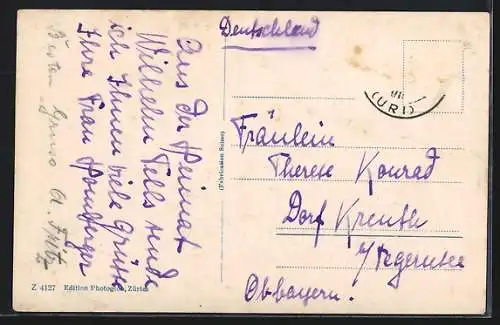 Aus der Heimat
Wilhelm Tells sende
ich Ihnen viele Grüsse
Ihre Frau Homberger
Besten Gruss A. Fritz
Deutschland
VII
(URI)
Fräulein
Therese Konrad
Dorf Kreuth
a/Tegernsee
Obbayern.
(Fabrication Suisse)
Z 4127 Edition Photoglob, Zürich